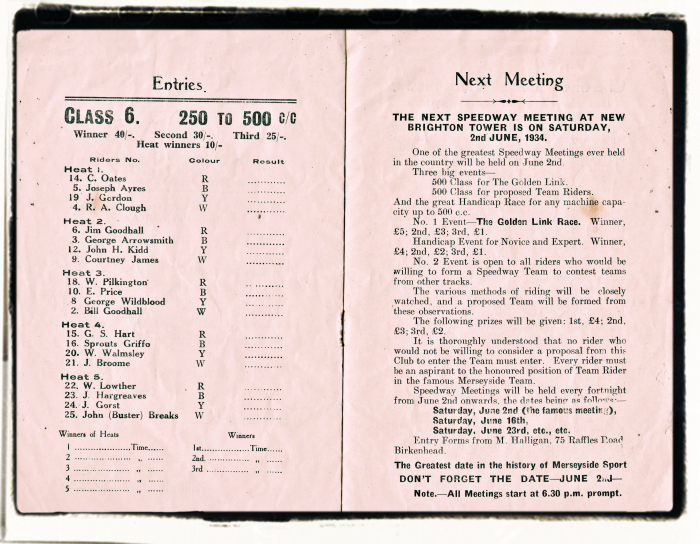 Entries.
CLASS 6. 250 TO 500 C/C
Winner 40/-. Second 30/-. Third 25/-.
Heat winners 10/-
Riders No. Colour Result
Heat 1.
14. C. Oates R ............
5. Joseph Ayres B ............
19 J. Gordon Y ............
4. R. A. Clough W ............
Heat 2.
6. Jim Goodhall R ............
3. George Arrowsmith B ............
12. John H. Kidd Y ............
9. Courtney James W ............
Heat 3.
18. W. Pilkington R ............
10. E. Price B ............
8 George Wildblood Y ............
2. Bill Goodhall W ............
Heat 4.
15. G. S. Hart R ............
16. Sprouts Griffo B ............
20. W. Walmsley Y ............
21. J. Broome W ............
Heat 5.
22. W. Lowther R ............
23. J. Hargreaves B ............
24. J. Gorst Y ............
25. John (Buster) Breaks W ............
Winners of Heats Winners
1 ..................Time...... 1st..................Time......
2 .................. „ ...... 2nd.................. „ ......
3 .................. „ ...... 3rd .................. „ ......
4 .................. „ ......
5 .................. „ ......
Next Meeting
THE NEXT SPEEDWAY MEETING AT NEW
BRIGHTON TOWER IS ON SATURDAY,
2nd JUNE, 1934.
One of the greatest Speedway Meetings ever held
in the country will be held on June 2nd.
Three big events—
500 Class for The Golden Link.
500 Class for proposed Team Riders.
And the great Handicap Race for any machine capa-
city up to 500 c.c.
No. 1 Event—The Golden Link Race. Winner,
£5; 2nd, £3; 3rd, £1.
Handicap Event for Novice and Expert. Winner,
£4; 2nd, £2; 3rd, £1.
No. 2 Event is open to all riders who would be
willing to form a Speedway Team to contest teams
from other tracks.
The various methods of riding will be closely
watched, and a proposed Team will be formed from
these observations.
The following prizes will be given: 1st, £4; 2nd,
£3; 3rd, £2.
It is thoroughly understood that no rider who
would not be willing to consider a proposal from this
Club to enter the Team must enter. Every rider must
be an aspirant to the honoured position of Team Rider
in the famous Merseyside Team.
Speedway Meetings will be held every fortnight
from June 2nd onwards, the dates being as follows:—
Saturday, June 2nd (the famous meeting),
Saturday, June 16th,
Saturday, June 23rd, etc., etc.
Entry Forms from M. Halligan, 75 Raffles Road
Birkenhead.
The Greatest date in the history of Merseyside Sport
DON'T FORGET THE DATE—JUNE 2nd—
Note.—All Meetings start at 6.30 p.m. prompt.